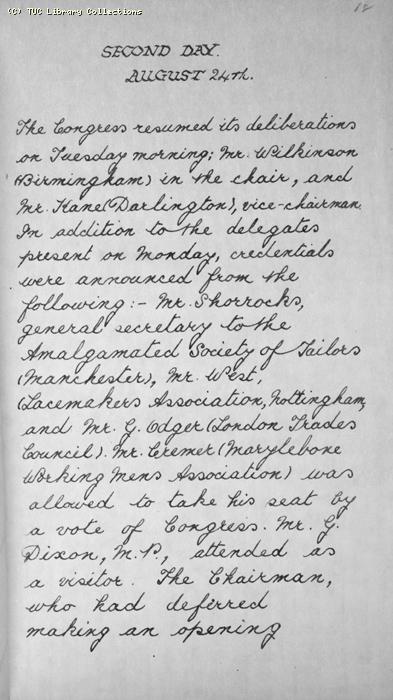 (C) TUC Library Collections
12
SECOND DAY.
AUGUST 24th.
The Congress resumed its deliberations
on Tuesday morning; Mr. Wilkinson
(Birmingham) in the chair, and
Mr. Kane (Darlington), vice-chairman.
In addition to the delegates
present on Monday, credentials
were announced from the
following :- Mr. Shorrocks,
general secretary to the
Amalgamated Society of Tailors
(Manchester), Mr. West,
(Lacemakers Association, Nottingham,
and Mr. G. Odger (London Trades
Council). Mr. Cremer (Marylebone
Working Mens Association) was
allowed to take his seat by
a vote of Congress. Mr. G.
Dixon, M.P., attended as
a visitor. The Chairman,
who had deferred
making an opening